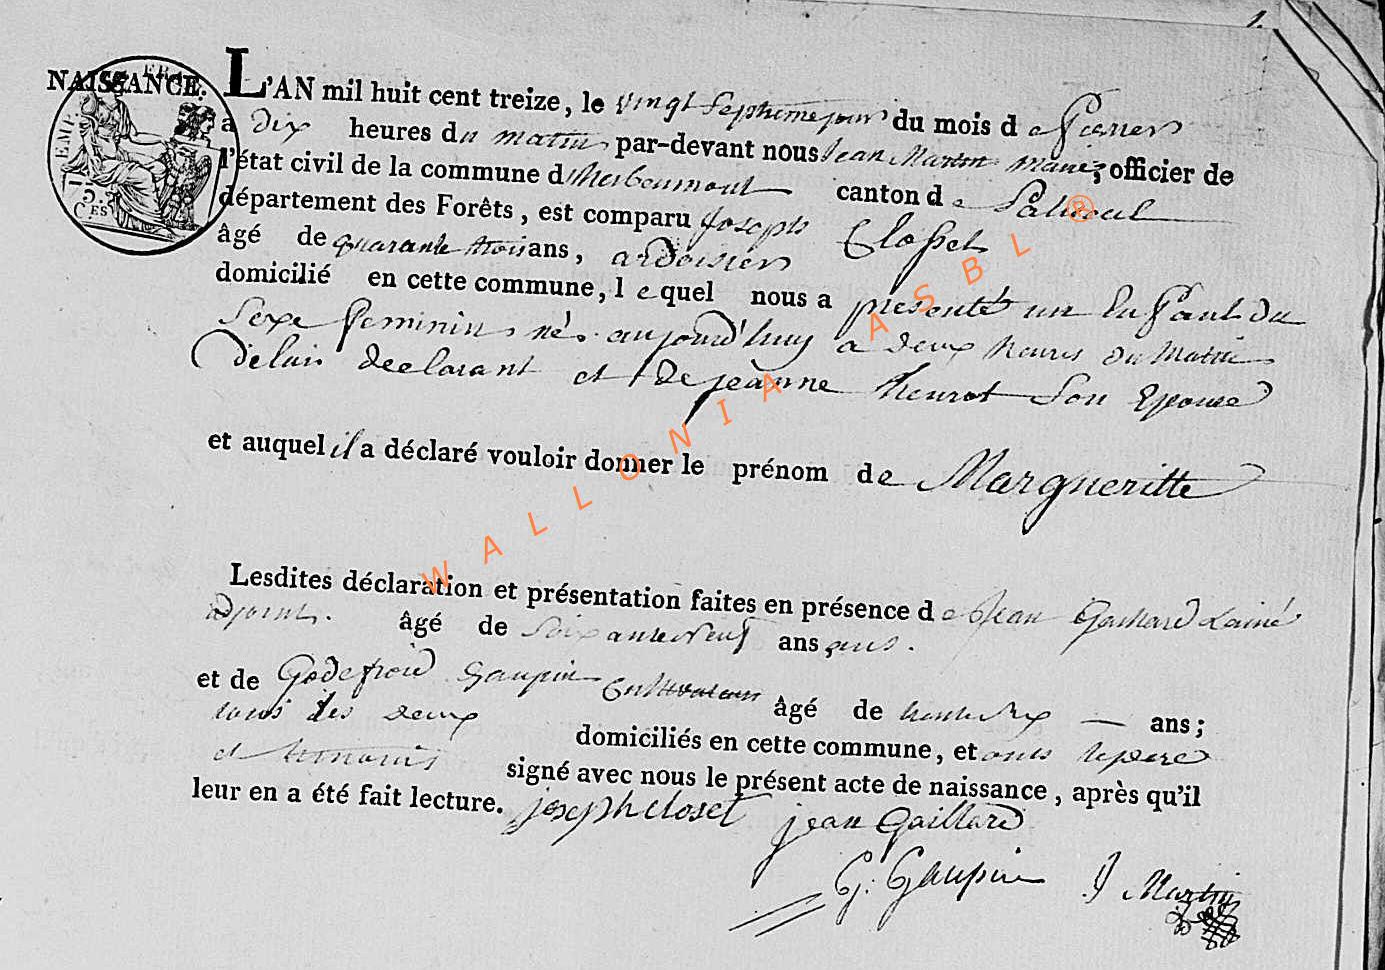 1.
NAISSANCE.
EMP. FRAN.
15. CES
L'AN mil huit cent treize, le vingt septieme jour du mois de fevrier
a dix heures du matin par-devant nous Jean Martin maire, officier de
l'état civil de la commune d'herbeumont canton de Paliseul
département des Forêts, est comparu Joseph Closset
âgé de quarante trois ans, ardoisier
domicilié en cette commune, lequel nous a presenté un Enfant du
Sexe feminin né aujourd'huy a deux heures du Matin
De lui declarant et De jeanne henrot Son Epouse
et auquel il a déclaré vouloir donner le prénom de Margueritte
Lesdites déclaration et présentation faites en présence de Jean Gaillard L'ainé
adjoint. âgé de Soixante Neuf ans, ans.
et de Godefroid Gaupin Cultivateur âgé de trente deux — ans;
tous les deux domiciliés en cette commune, et ont le pere
et temoins signé avec nous le présent acte de naissance, après qu'il
leur en a été fait lecture. joseph closet jean Gaillard
G. Gaupin J Martin
WALLONIA ASBL ®